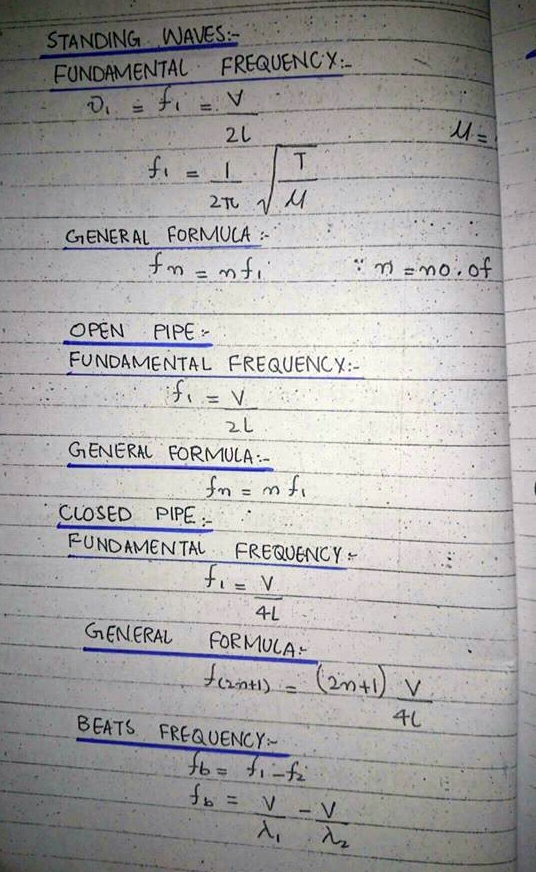 STANDING WAVES:-
FUNDAMENTAL FREQUENCY:-
υ₁ = f₁ = V/2L
μ =
f₁ = 1/2π √(T/μ)
GENERAL FORMULA :-
fn = nf₁ ∵ n = no. of
OPEN PIPE :-
FUNDAMENTAL FREQUENCY:-
f₁ = V/2L
GENERAL FORMULA:-
fn = n f₁
CLOSED PIPE :-
FUNDAMENTAL FREQUENCY :-
f₁ = V/4L
GENERAL FORMULA:-
f(2n+1) = (2n+1) V/4L
BEATS FREQUENCY:-
fb = f₁ - f₂
fb = V/λ₁ - V/λ₂